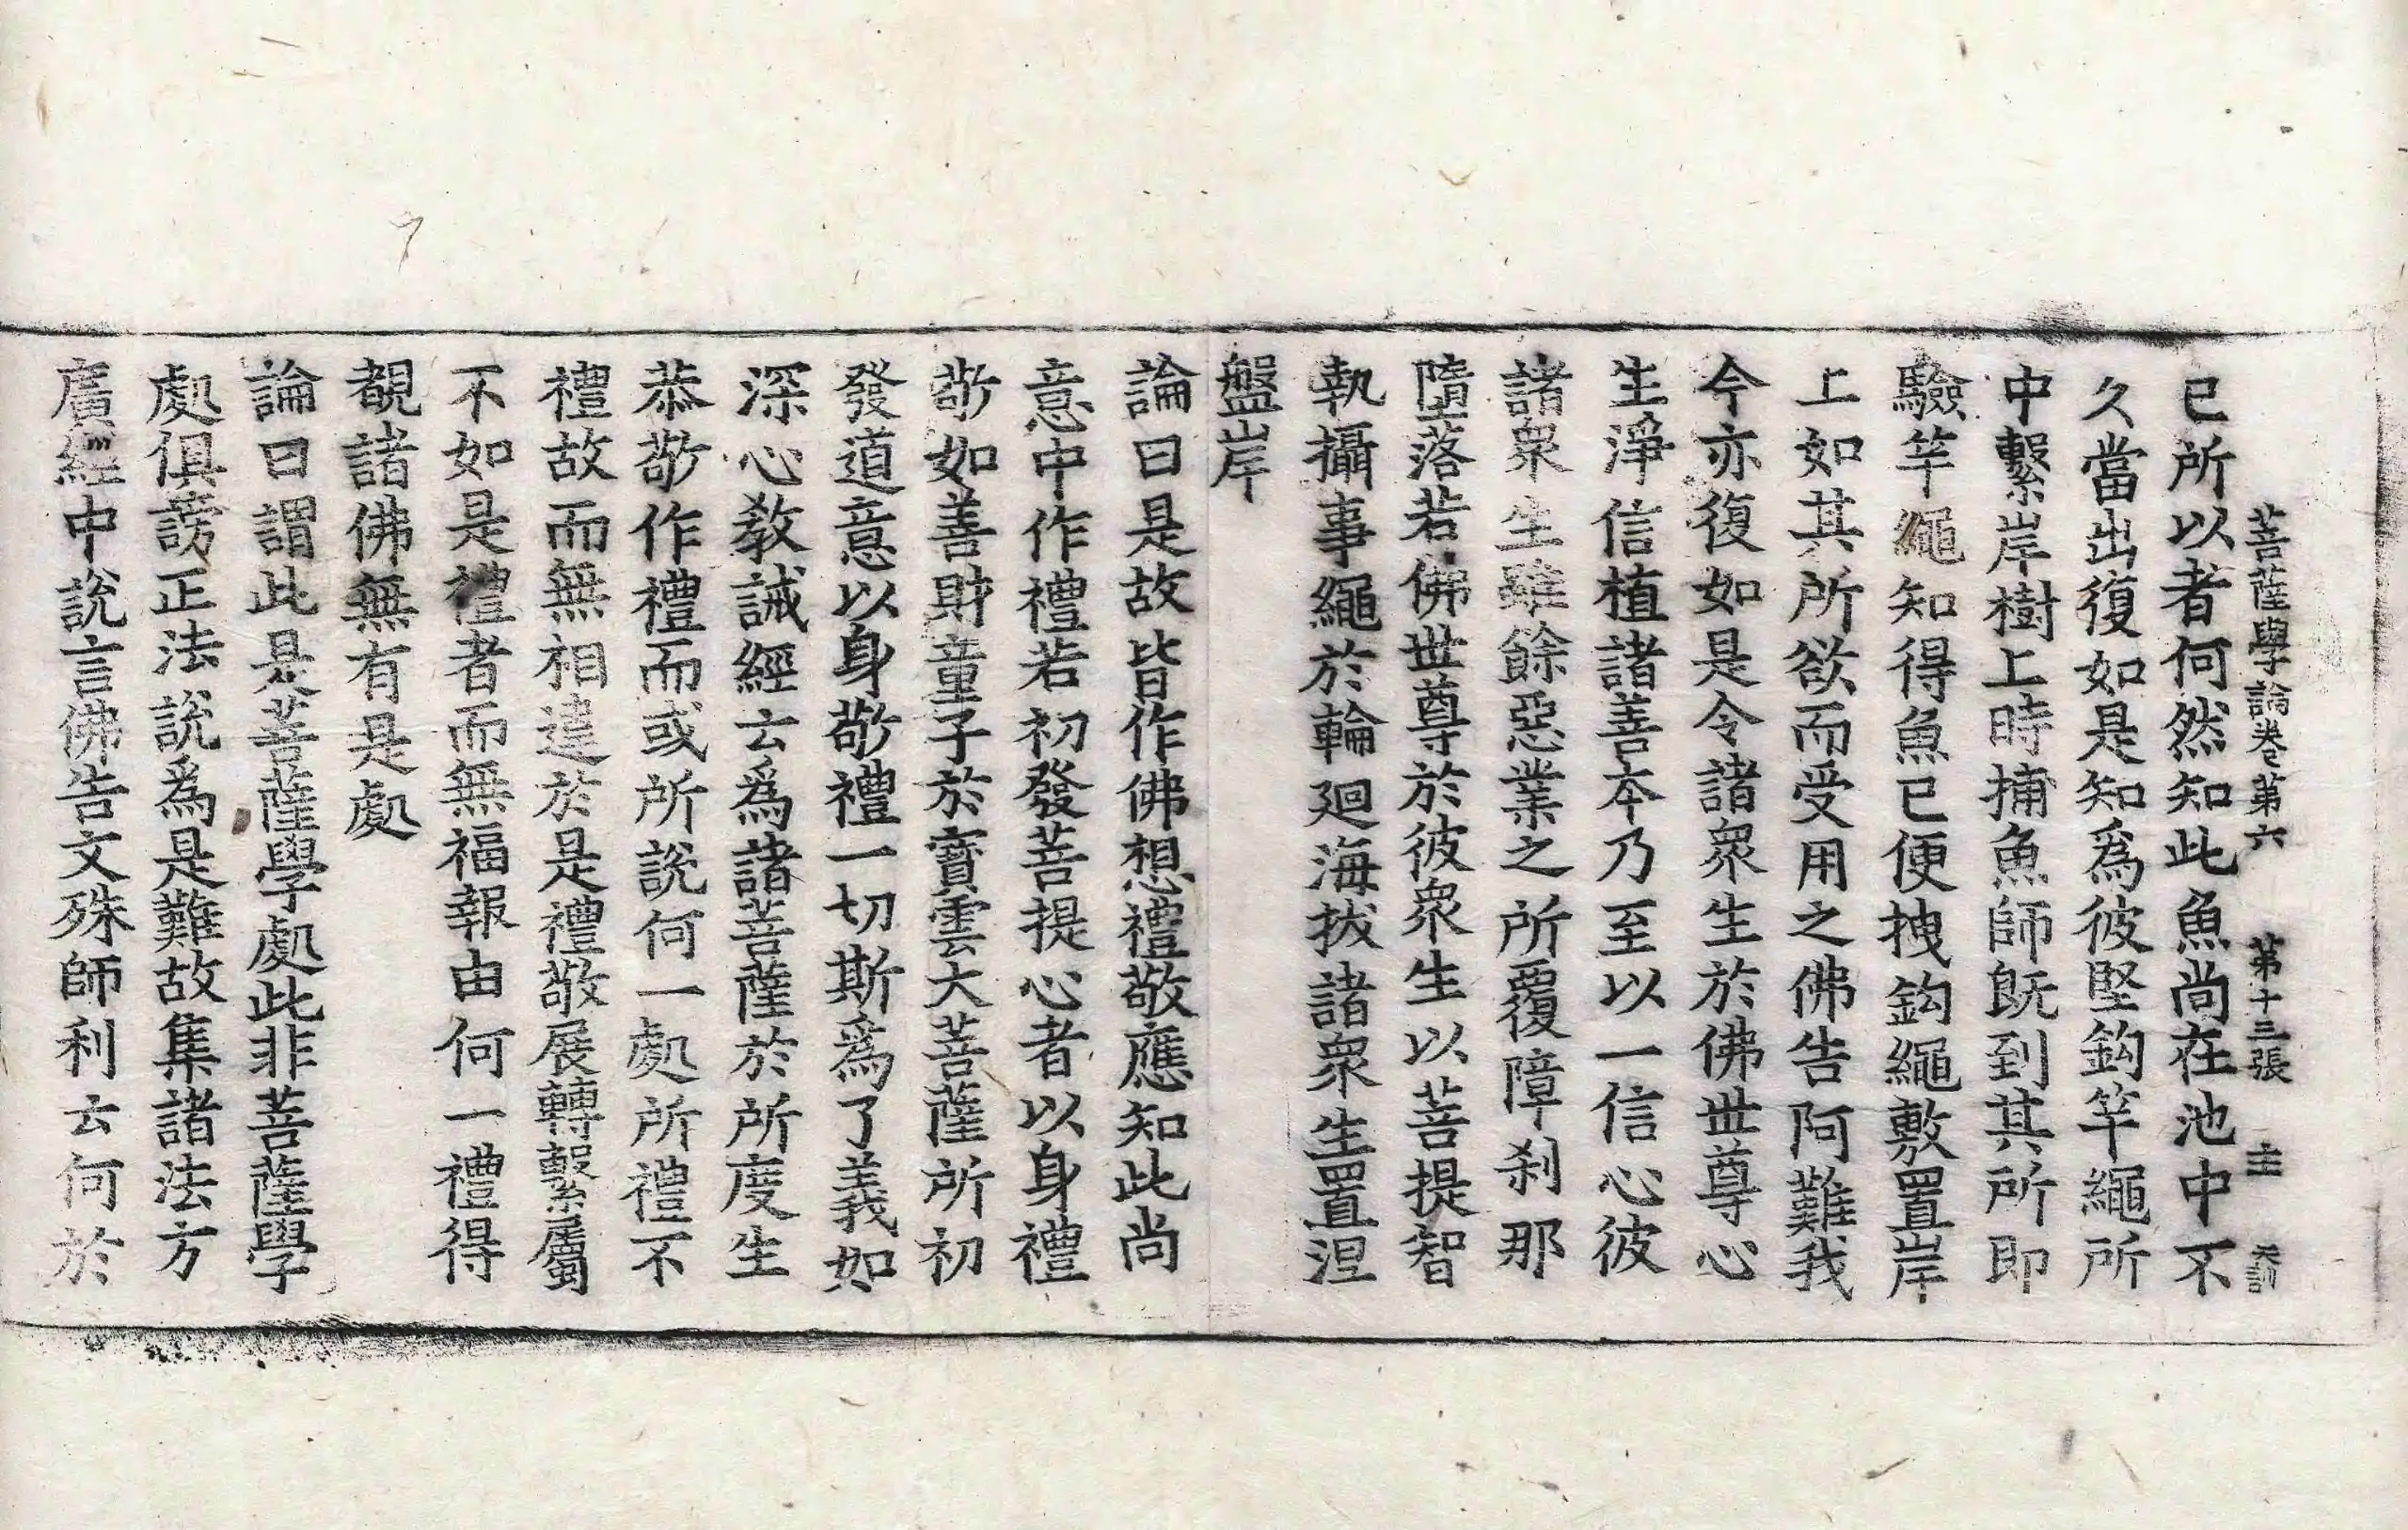 菩薩學論卷第六 第十三張 主 天訓
已所以者何然知此魚尚在池中不
久當出復如是知爲彼堅鈎竿繩所
中繫岸樹上時捕魚師旣到其所即
驗竿繩知得魚已便拽鈎繩敷置岸
上如其所欲而受用之佛告阿難我
今亦復如是令諸衆生於佛世尊心
生淨信植諸善本乃至以一信心彼
諸衆生雖餘惡業之所覆障刹那
墮落若佛世尊於彼衆生以菩提智
執攝事繩於輪迴海拔諸衆生置涅
盤岸
論曰是故皆作佛想禮敬應知此尚
意中作禮若初發菩提心者以身禮
敬如善財童子於寶雲大菩薩所初
發道意以身敬禮一切斯爲了義如
深心教誡經云爲諸菩薩於所度生
恭敬作禮而或所說何一處所禮不
禮故而無相違於是禮敬展轉繫屬
不如是禮者而無福報由何一禮得
覩諸佛無有是處
論曰謂此是菩薩學處此非菩薩學
處俱謗正法說爲是難故集諸法方
廣經中說言佛告文殊師利云何於